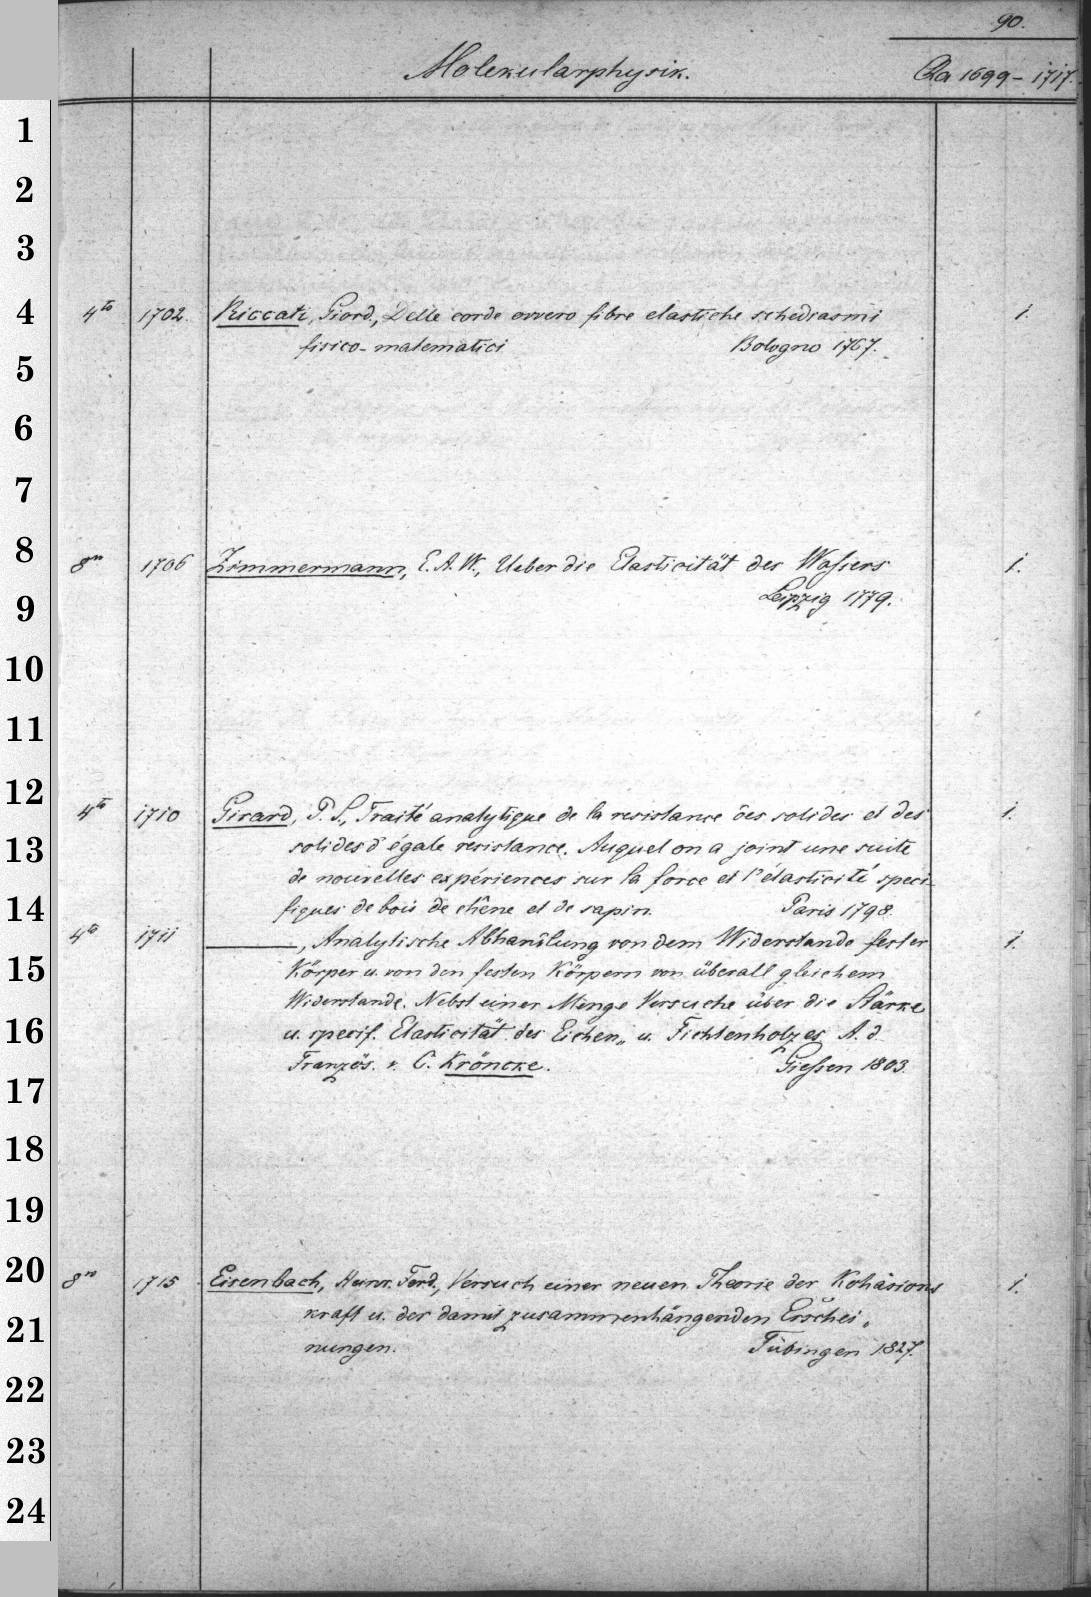 90.
Molekularphysik. Qa 1699 - 1717.
1
2
3
4 4to 1702. Riccati, Giord., Delle corde ovvero fibre elastiche schediasmi 1.
fisico-matematici Bologno 1767.
5
6
7
8 8vo 1706 Zimmermann, E. A. W., Ueber die Elasticität des Waßers 1.
9 Leipzig 1779.
10
11
12 4to 1710 Girard, P. S., Traité analytique de la resistance des solides et des 1.
13 solides d'égale resistance. Auquel on a joint une suite
de nouvelles expériences sur la force et l'élasticité speci-
14 fiques de bois de chêne et de sapin. Paris 1798.
4to 1711 ———, Analytische Abhandlung von dem Widerstande fester 1.
15 Körper u. von den festen Körpern von überall gleichem
Widerstande. Nebst einer Menge Versuche über die Stärke
16 u. specif. Elasticität des Eichen„ u. Fichtenholzes A. d.
17 Französ. v. C. Kröncke. Gießen 1803.
18
19
20 8vo 1715 Eisenbach, Ferd., Versuch einer neuen Theorie der Kohäsions 1.
21 kraft u. der damit zusammenhängenden Erschei„
nungen. Tübingen 1827.
22
23
24